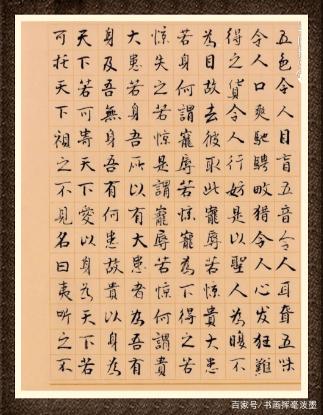 五色令人目盲五音令人耳聋五味
令人口爽馳騁畋猎令人心发狂難
得之貨令人行妨是以聖人為腹不
為目故去彼取此寵辱若惊貴大患
若身何謂寵辱若惊寵為下得之若
惊失之若惊是謂寵辱若惊何謂貴
大患若身吾所以有大患者為吾有
身及吾無身吾有何患故貴以身為
天下若可寄天下愛以身為天下若
可托天下視之不見名曰夷听之不
百家号/书画挥毫泼墨